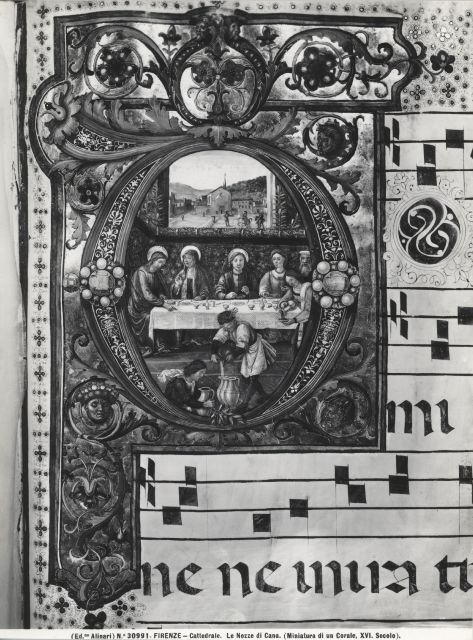 D
mi
ne ne in ira tu
(Ed.ne Alinari) N.° 30991. FIRENZE – Cattedrale. Le Nozze di Cana. (Miniatura di un Corale, XVI. Secolo).